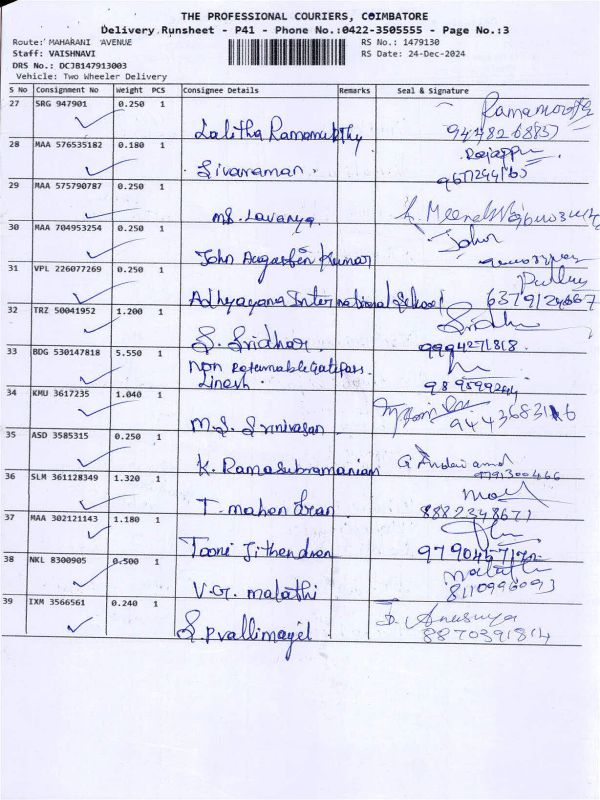 THE PROFESSIONAL COURIERS, COIMBATORE
Delivery Runsheet - P41 - Phone No.:0422-3505555 - Page No.:3
Route: MAHARANI AVENUE RS No.: 1479130
Staff: VAISHNAVI RS Date: 24-Dec-2024
DRS No.: DCJB147913003
Vehicle: Two Wheeler Delivery
S No Consignment No Weight PCS Consignee Details Remarks Seal & Signature
27 SRG 947901 0.250 1
Lalitha Ramamurthy
28 MAA 576535182 0.180 1 Rajappa
Sivaraman.
29 MAA 575790787 0.250 1
MS. Lavanya.
30 MAA 704953254 0.250 1 John
John Augasteen Kumar
31 VPL 226077269 0.250 1
Adhyayana International School 6379124667
32 TRZ 50041952 1.200 1 Sridhar
S. Sridhar. 9994271818.
33 BDG 530147818 5.550 1
Non Returnable Gatepass.
Linesh.
34 KMU 3617235 1.040 1
M.S. Srinivasan
35 ASD 3585315 0.250 1
K. Ramasubramanian
36 SLM 361128349 1.320 1
T. mahendran 8882348671
37 MAA 302121143 1.180 1
Jithendren
38 NKL 8300905 0.500 1 Malathi
V.G. malathi 8110996093
39 IXM 3566561 0.240 1 D. Anusuya
S.P vallimayil 8870391814